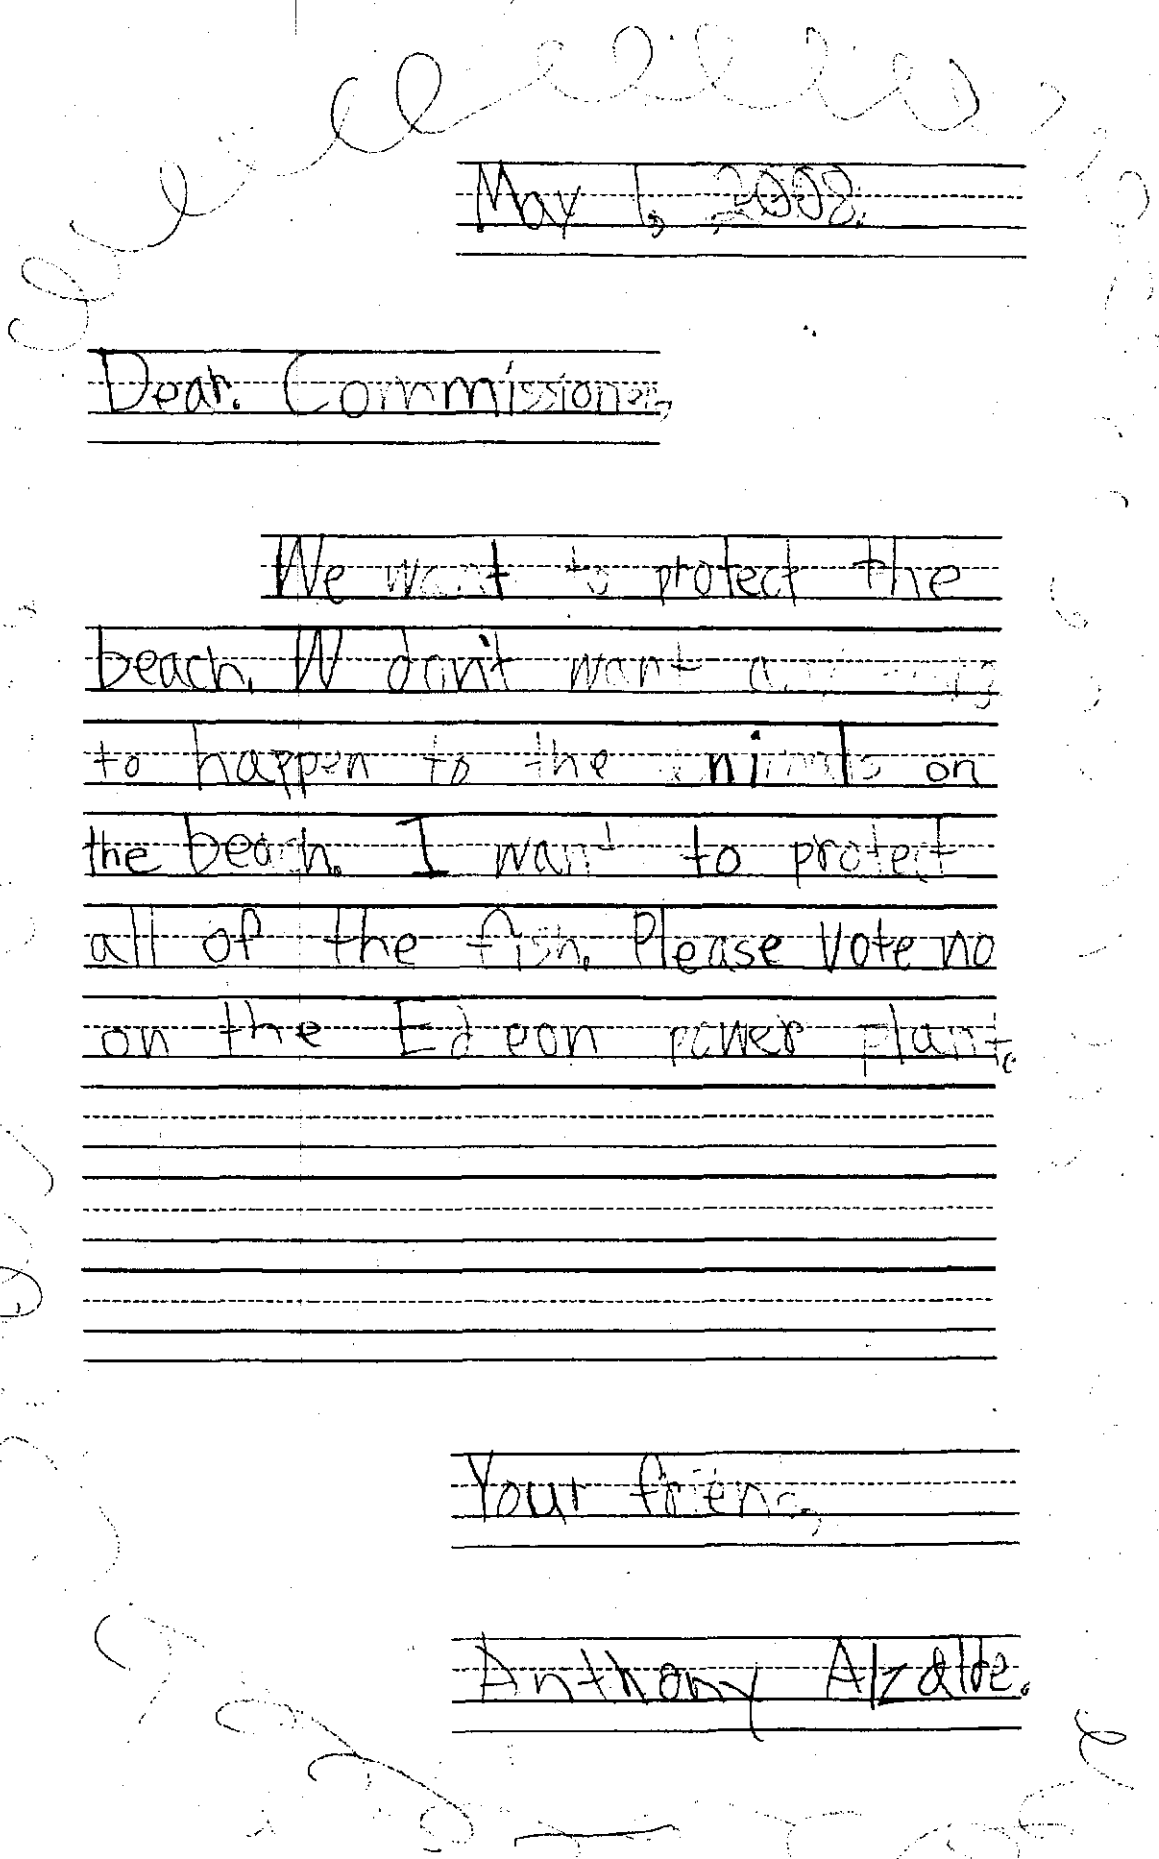 May 1, 2008.
Dear. Commissioner,
We want to protect the
beach. W don't want
to happen to the animals on
the beach. I want to protect
all of the fish. Please Vote no
on the Edeon power plant.
Your friend,
Anthony Alzalde.